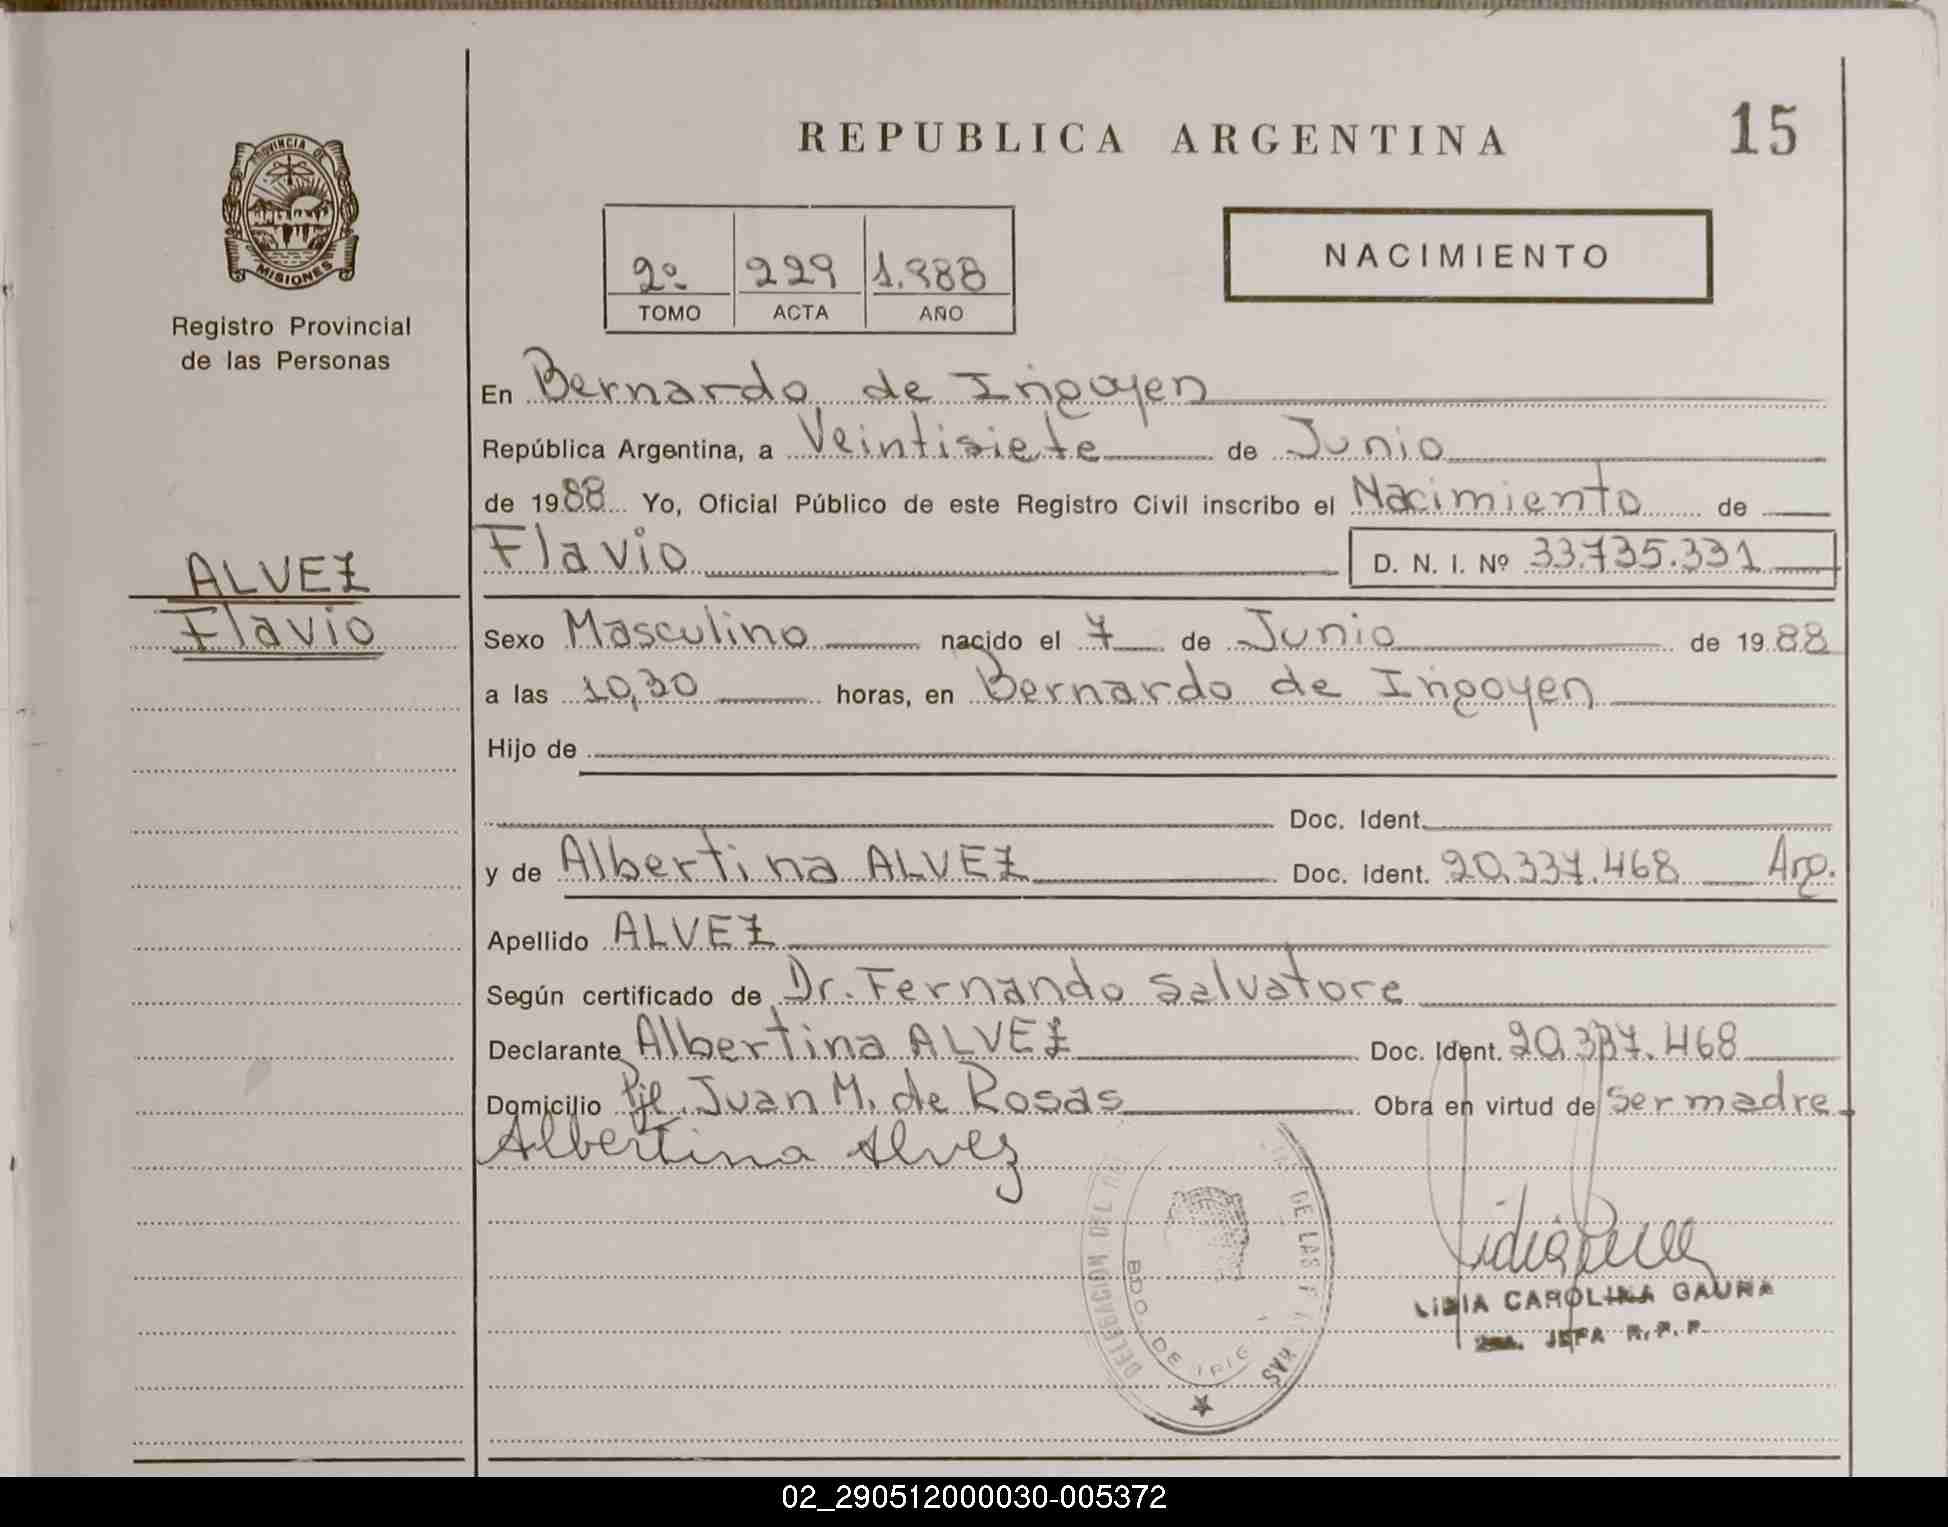 REPUBLICA ARGENTINA
15
PROVINCIA DE
MISIONES
Registro Provincial
de las Personas
2º 229 1.988
TOMO ACTA AÑO
NACIMIENTO
En Bernardo de Irigoyen
República Argentina, a Veintisiete de Junio
de 1988 Yo, Oficial Público de este Registro Civil inscribo el Nacimiento de
Flavio D. N. I. Nº 33.735.331
ALVEZ
Flavio
Sexo Masculino nacido el 7 de Junio de 1988
a las 10,30 horas, en Bernardo de Irigoyen
Hijo de
Doc. Ident.
y de Albertina ALVEZ Doc. Ident. 20.337.468 Arg.
Apellido ALVEZ
Según certificado de Dr. Fernando Salvatore
Declarante Albertina ALVEZ Doc. Ident. 20.337.468
Domicilio Pje. Juan M. de Rosas Obra en virtud de ser madre
Albertina Alvez
DELEGACION DEL DE LAS
BDO. DE IRIG
LIDIA CAROLINA GAUNA
JEFA R. P. P.
02_290512000030-005372